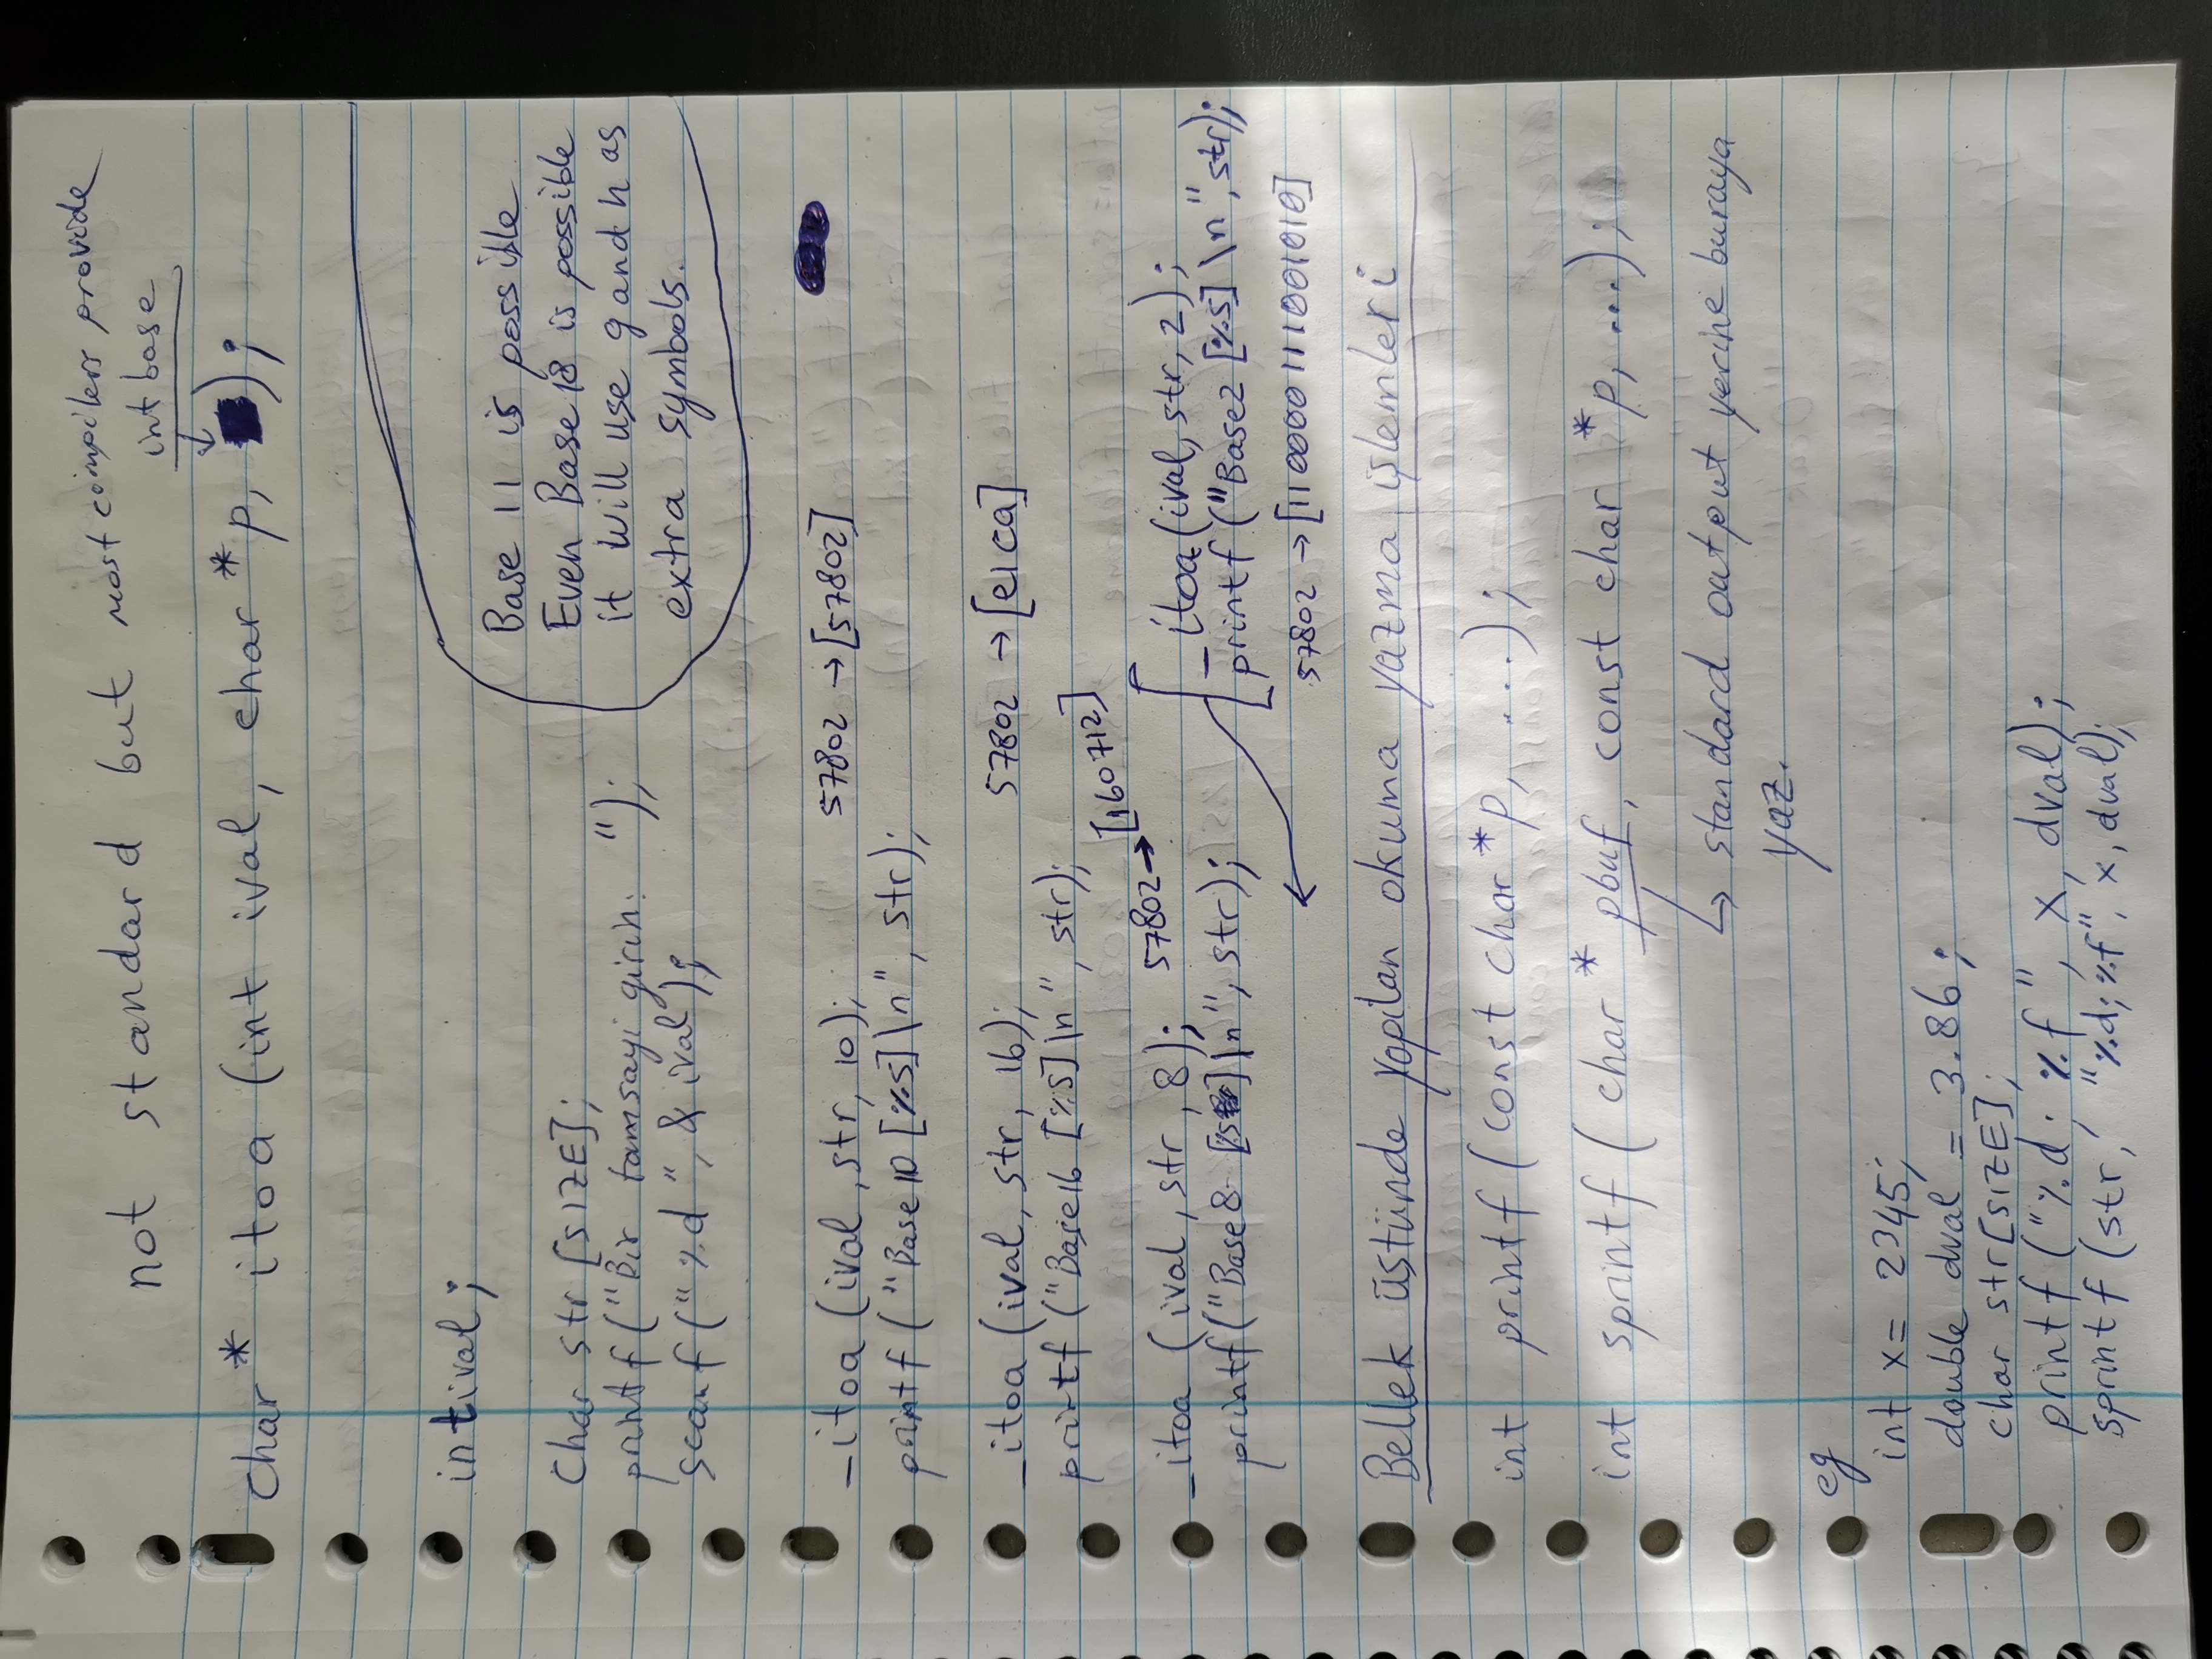 not standard but most compilers provide
int base
char* itoa (int ival, char *p, );
int ival;
Char str [SIZE];
printf ("Bir tamsayi girin: ");
scanf ("%d", & ival);
Base 11 is possible
Even Base 18 is possible
it will use g and h as
extra symbols.
_itoa (ival, str, 10); 57802 → [57802]
printf ("Base 10 [%s]\n", str);
_itoa (ival, str, 16); 57802 → [e1ca]
printf ("Base16 [%s]\n", str);
_itoa (ival, str, 8); 57802 → [160712]
printf ("Base 8 [%s]\n", str);
_itoa (ival, str, 2);
printf ("Base2 [%s] \n", str);
57802 → [1100001111001010]
Bellek üstünde yapılan okuma yazma işlemleri
int printf (const char *p, ...);
int sprintf ( char * pbuf, const char *p, ...);
↳ standard output yerine buraya
yaz.
eg
int x = 2345;
double dval = 3.86;
char str[SIZE];
printf ("%d; %f", x, dval);
sprintf (str, "%d; %f", x, dval);